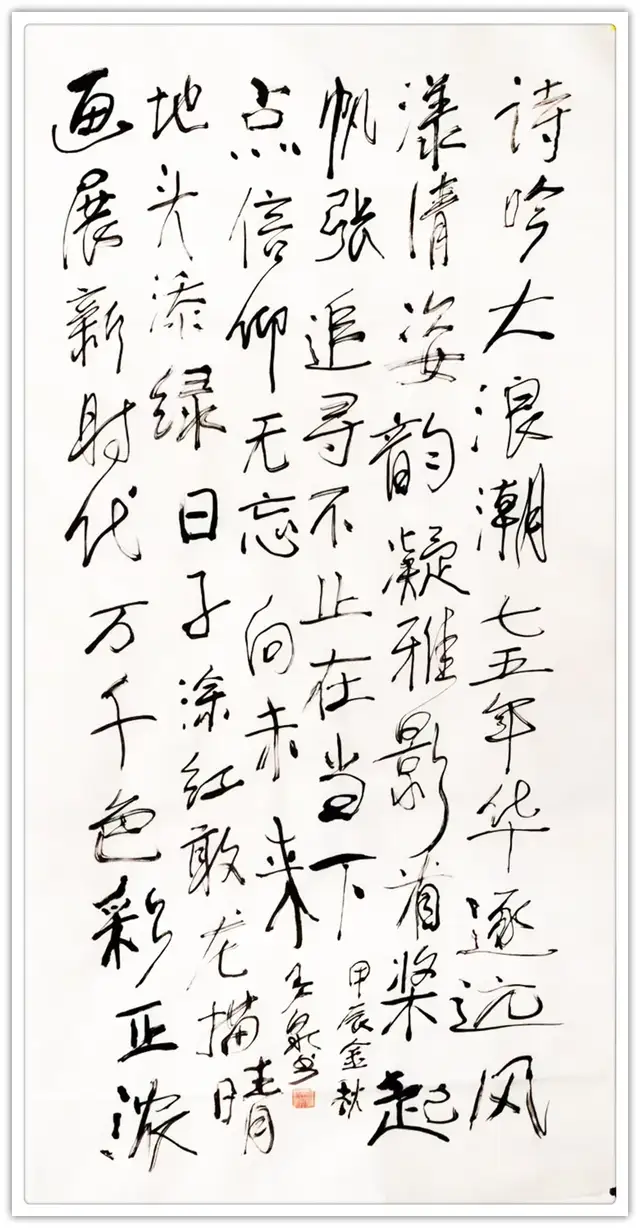 诗吟大浪潮七五年华逐远风
漾清姿韵凝雅影看桨起
帆张追寻不止在当下
甲辰金秋
画展新时代万千色彩正浓
地头添绿日子涂红敢龙描晴
点信仰无忘向未来
泉书